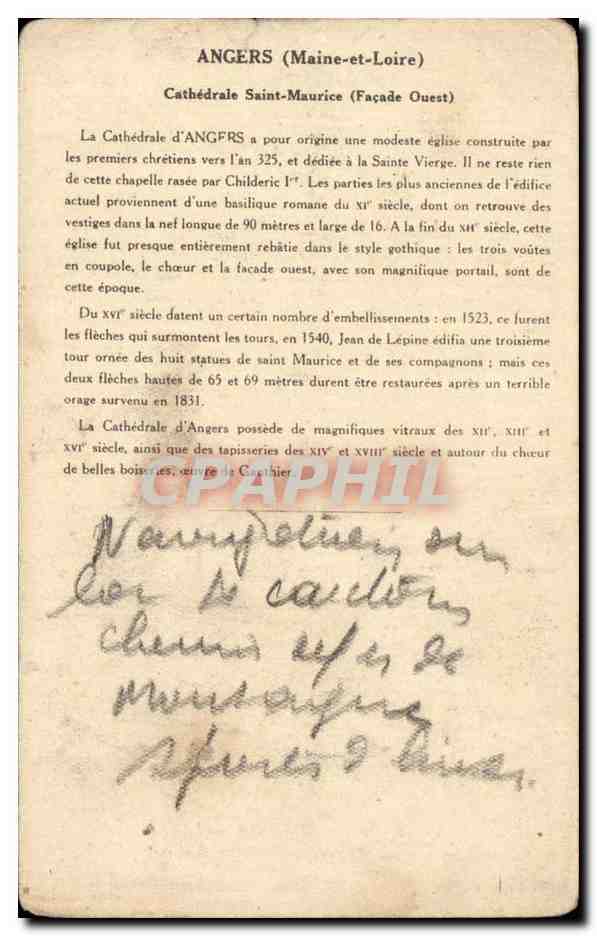 ANGERS (Maine-et-Loire)
Cathédrale Saint-Maurice (Façade Ouest)
La Cathédrale d'ANGERS a pour origine une modeste église construite par
les premiers chrétiens vers l'an 325, et dédiée à la Sainte Vierge. Il ne reste rien
de cette chapelle rasée par Childeric Ier. Les parties les plus anciennes de l'édifice
actuel proviennent d'une basilique romane du XIe siècle, dont on retrouve des
vestiges dans la nef longue de 90 mètres et large de 16. A la fin du XIIe siècle, cette
église fut presque entièrement rebâtie dans le style gothique : les trois voûtes
en coupole, le chœur et la façade ouest, avec son magnifique portail, sont de
cette époque.
Du XVIe siècle datent un certain nombre d'embellissements : en 1523, ce furent
les flèches qui surmontent les tours, en 1540, Jean de Lépine édifia une troisième
tour ornée des huit statues de saint Maurice et de ses compagnons ; mais ces
deux flèches hautes de 65 et 69 mètres durent être restaurées après un terrible
orage survenu en 1831.
La Cathédrale d'Angers possède de magnifiques vitraux des XIIe, XIIIe et
XVIe siècle, ainsi que des tapisseries des XIVe et XVIIIe siècle et autour du chœur
de belles boiseries, œuvre de Gauthier.
CPAPHIL
de
chemin de
montagne